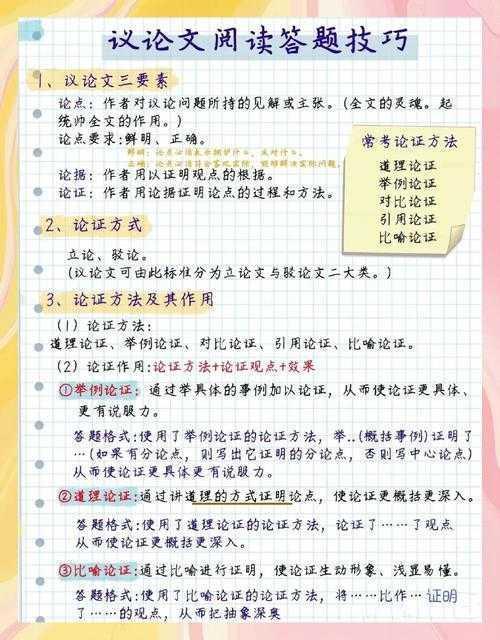 议论文阅读答题技巧
1、议论文三要素
论点：作者对议论问题所持的见解或主张。(全文的灵魂。起
统帅全文的作用。)
论点要求:鲜明、正确。
鲜明：论点必须表示拥护什么，反对什么。
正确：论点必须符合客观实际，能够解决实际问题。
论据：作者用以证明观点的根据。
论证：作者用论据证明论点的过程和方法。
常考论证方法
道理论证
举例论证
对比论证
引用论证
比喻论证
2、论证方式
立论、驳论。
(议论文可由此标准分为立论文与驳论文二大类。)
3、论证方法及其作用
(1)论证方法：
道理论证、举例论证、对比论证、引用论证、比喻论证。
(2)论证作用:论证方法+论证观点+效果
①举例论证：通过举具体的事例加以论证，从而使论证更具体、
更有说服力。
答题格式:使用了举例论证的论证方法，举..(概括事例)证明了
…(如果有分论点，则写出它证明的分论点，否则写中心论点)
从而使论证更具体更有说服力。
②道理论证:通过讲道理的方式证明论点，使论证更概括更深入。
答题格式:使用了道理论证的论证方法，论证了……了观点
从而使论证更概括更深入。
③比喻论证:通过比喻进行证明，使论证生动形象、浅显易懂。
答题格式:使用了比喻论证的论证方法，将……比作…证明
了……的观点，从而把抽象深奥